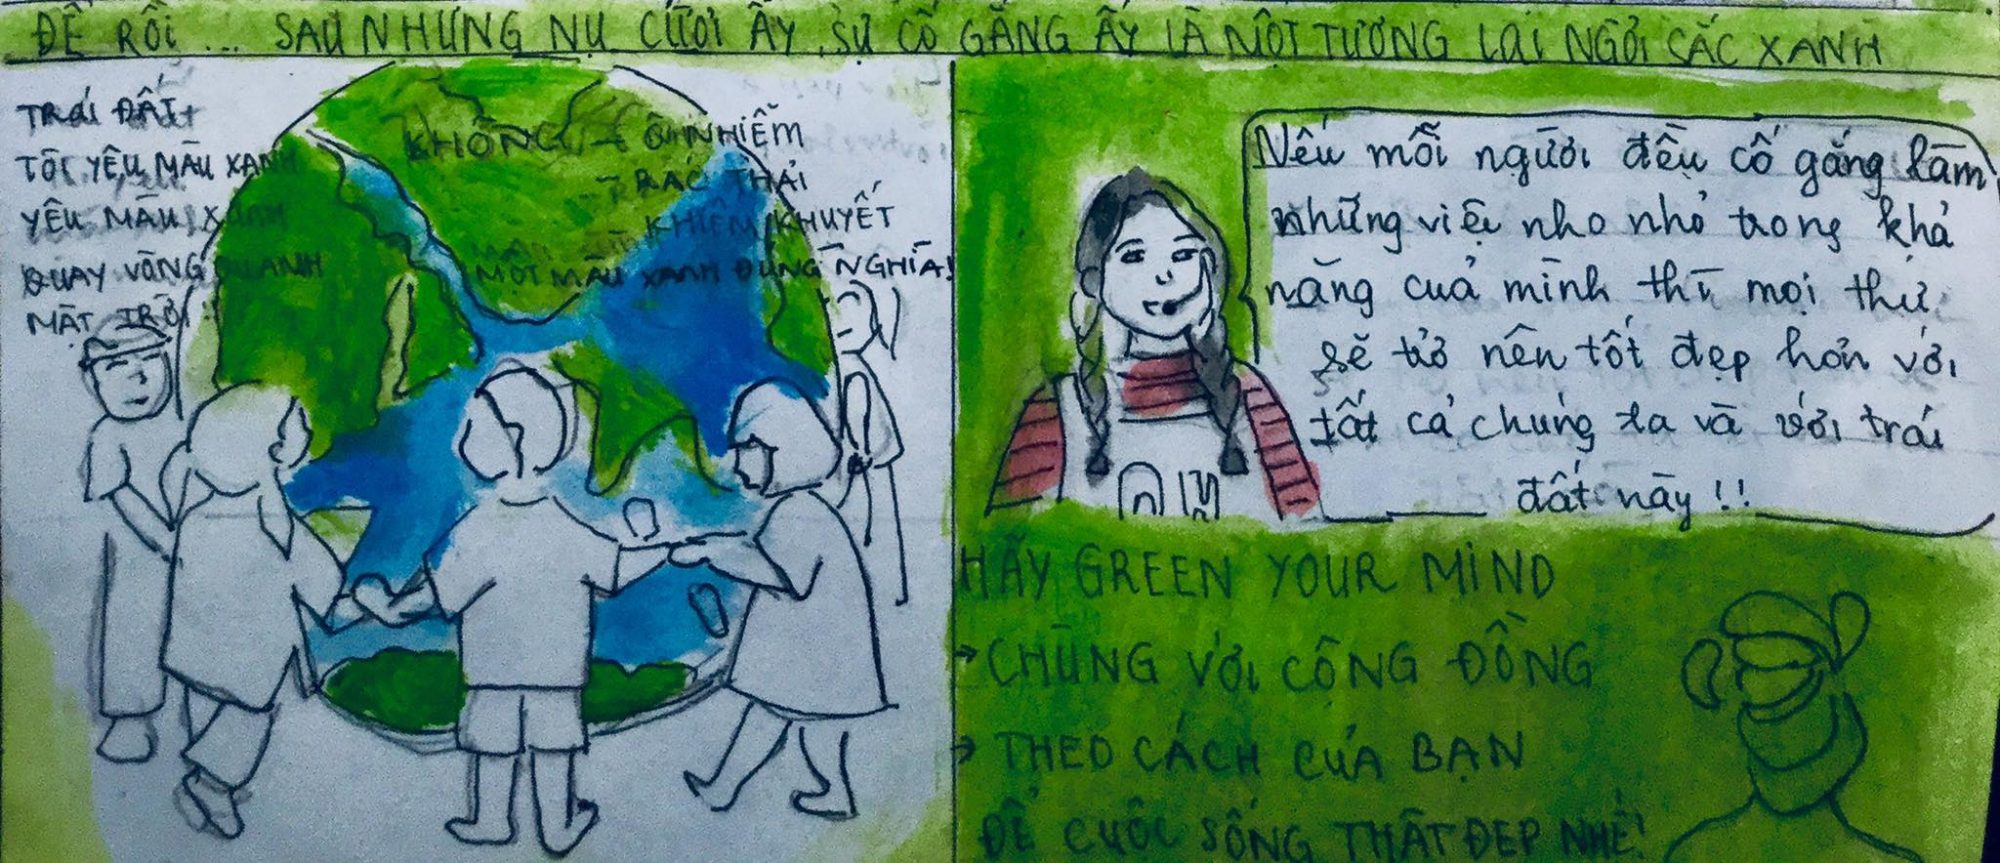 ĐỂ RỒI... SAU NHỮNG NỤ CƯỜI ẤY, SỰ CỐ GẮNG ẤY LÀ MỘT TƯƠNG LAI NGỜI SẮC XANH
TRÁI ĐẤT
TÔI YÊU MÀU XANH
YÊU MÀU XANH
QUAY VÒNG QUANH
MẶT TRỜI
KHÔNG - Ô NHIỄM
- RÁC THẢI
KHIẾM KHUYẾT
MỘT MÀU XANH ĐÚNG NGHĨA!
Nếu mỗi người đều cố gắng làm
những việc nho nhỏ trong khả
năng của mình thì mọi thứ
sẽ trở nên tốt đẹp hơn với
tất cả chúng ta và với trái
đất này!!
HÃY GREEN YOUR MIND
→ CHUNG VỚI CỘNG ĐỒNG
→ THEO CÁCH CỦA BẠN
ĐỂ CUỘC SỐNG THẬT ĐẸP NHÉ!